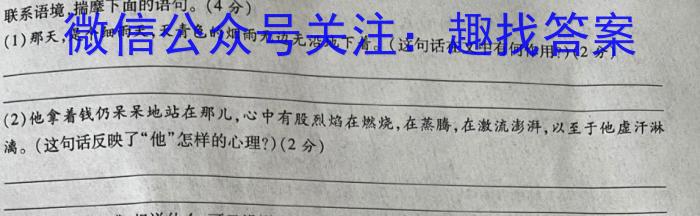 联系语境,揣摩下面的语句。(4分)
微信公众号关注:趣找答案
(1)那天,是个细雨天,天青色的烟雨无边无沿地下着。(这句话在文中有何作用?)(2分)
(2)他拿着钱仍呆呆地站在那儿,心中有股烈焰在燃烧,在蒸腾,在激流澎湃,以至于他虚汗淋
漓。(这句话反映了“他”怎样的心理?)(2分)